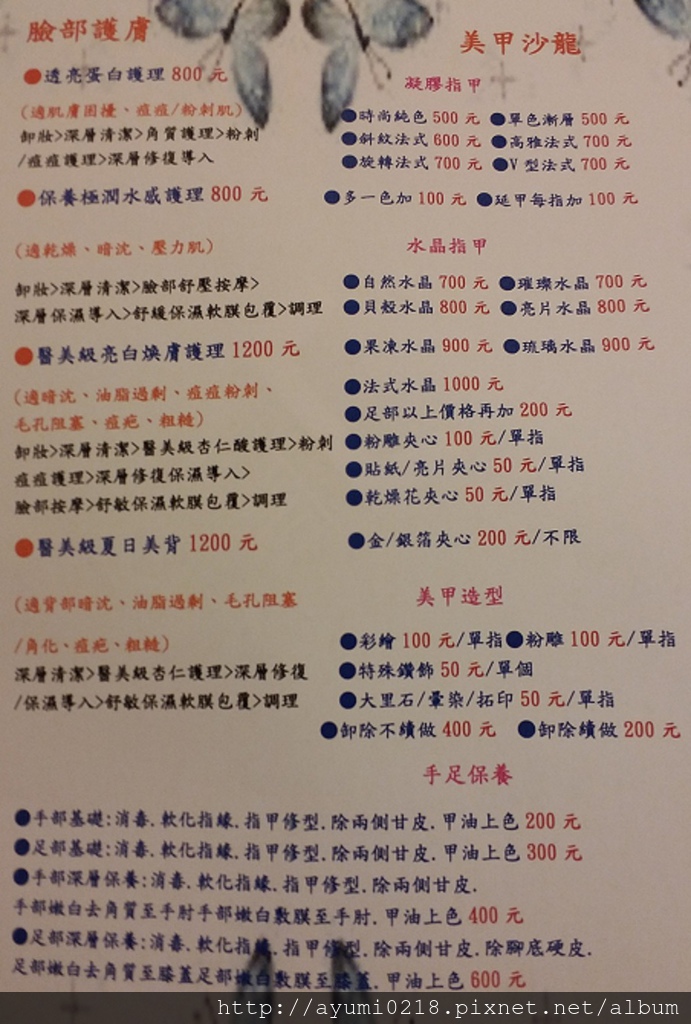 臉部護膚
●透亮蛋白護理 800 元
(適肌膚困擾、痘痘/粉刺肌)
卸妝>深層清潔>角質護理>粉刺
/痘痘護理>深層修復導入
●保養極潤水感護理 800 元
(適乾燥、暗沈、壓力肌)
卸妝>深層清潔>臉部舒壓按摩>
深層保濕導入>舒緩保濕軟膜包覆>調理
●醫美級亮白煥膚護理 1200 元
(適暗沈、油脂過剩、痘痘粉刺、
毛孔阻塞、痘疤、粗糙)
卸妝>深層清潔>醫美級杏仁酸護理>粉刺
痘痘護理>深層修復保濕導入>
臉部按摩>舒敏保濕軟膜包覆>調理
●醫美級夏日美背 1200 元
(適背部暗沈、油脂過剩、毛孔阻塞
/角化、痘疤、粗糙)
深層清潔>醫美級杏仁護理>深層修復
/保濕導入>舒敏保濕軟膜包覆>調理
美甲沙龍
凝膠指甲
●時尚純色 500 元 ●單色漸層 500 元
●斜紋法式 600 元 ●高雅法式 700 元
●旋轉法式 700 元 ●V 型法式 700 元
●多一色加 100 元 ●延甲每指加 100 元
水晶指甲
●自然水晶 700 元 ●璀璨水晶 700 元
●貝殼水晶 800 元 ●亮片水晶 800 元
●果凍水晶 900 元 ●琉璃水晶 900 元
●法式水晶 1000 元
●足部以上價格再加 200 元
●粉雕夾心 100 元/單指
●貼紙/亮片夾心 50 元/單指
●乾燥花夾心 50 元/單指
●金/銀箔夾心 200 元/不限
美甲造型
●彩繪 100 元/單指●粉雕 100 元/單指
●特殊鑽飾 50 元/單個
●大里石/暈染/拓印 50 元/單指
●卸除不續做 400 元 ●卸除續做 200 元
手足保養
●手部基礎:消毒.軟化指緣.指甲修型.除兩側甘皮.甲油上色 200 元
●足部基礎:消毒.軟化指緣.指甲修型.除兩側甘皮.甲油上色 300 元
●手部深層保養:消毒.軟化指緣.指甲修型.除兩側甘皮.
手部嫩白去角質至手肘手部嫩白敷膜至手肘.甲油上色 400 元
●足部深層保養:消毒.軟化指緣.指甲修型.除兩側甘皮.除腳底硬皮.
足部嫩白去角質至膝蓋足部嫩白敷膜至膝蓋.甲油上色 600 元
http://ayumi0218.pixnet.net/album